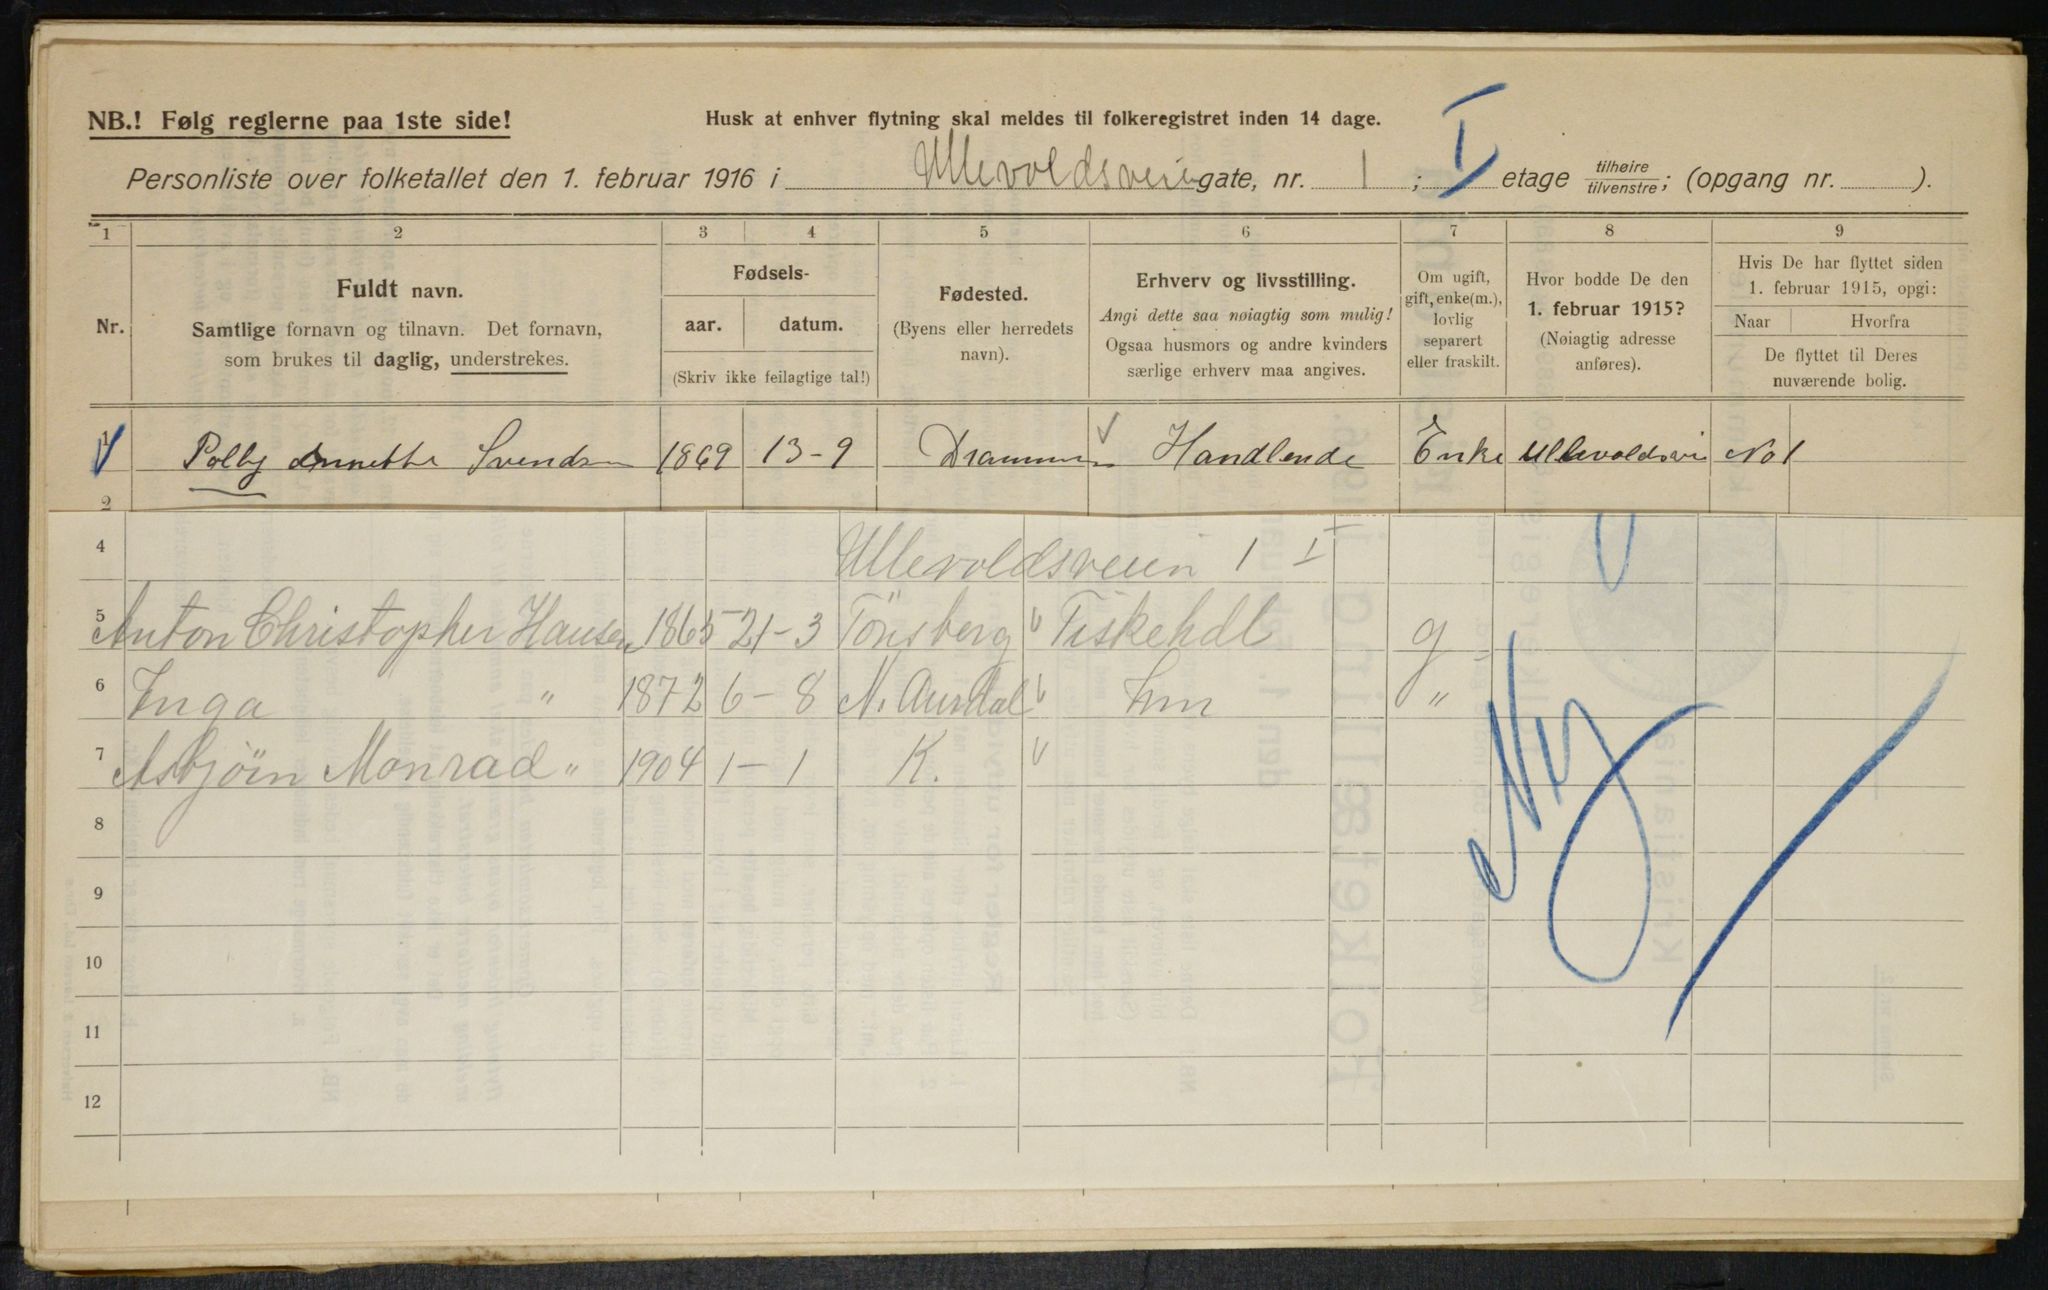 NB.! Følg reglerne paa 1ste side!
Husk at enhver flytning skal meldes til folkeregistret inden 14 dage.
Personliste over folketallet den 1. februar 1916 i Ullevoldsveien gate, nr. 1 ; I etage tilhøire/tilvenstre; (opgang nr. ).
1 2 3 4 5 6 7 8 9
Nr.
Fuldt navn.
Samtlige fornavn og tilnavn. Det fornavn,
som brukes til daglig, understrekes.
Fødsels-
aar. datum.
(Skriv ikke feilagtige tal!)
Fødested.
(Byens eller herredets
navn).
Erhverv og livsstilling.
Angi dette saa nøiagtig som mulig!
Ogsaa husmors og andre kvinders
særlige erhverv maa angives.
Om ugift,
gift, enke(m.),
lovlig
separert
eller fraskilt.
Hvor bodde De den
1. februar 1915?
(Nøiagtig adresse
anføres).
Hvis De har flyttet siden
1. februar 1915, opgi:
Naar Hvorfra
De flyttet til Deres
nuværende bolig.
1 Polly Annette Svendsen 1869 13-9 Drammen Handlende Enke Ullevoldsvei No 1
2
4 Ullevoldsveien 1 I
5 Anton Christopher Hansen 1865 21-3 Tönsberg Fiskehdl g
6 Inga " 1872 6-8 N. Aurdal hm "
7 Asbjörn Monrad " 1904 1-1 K.
Ny
8
9
10
11
12